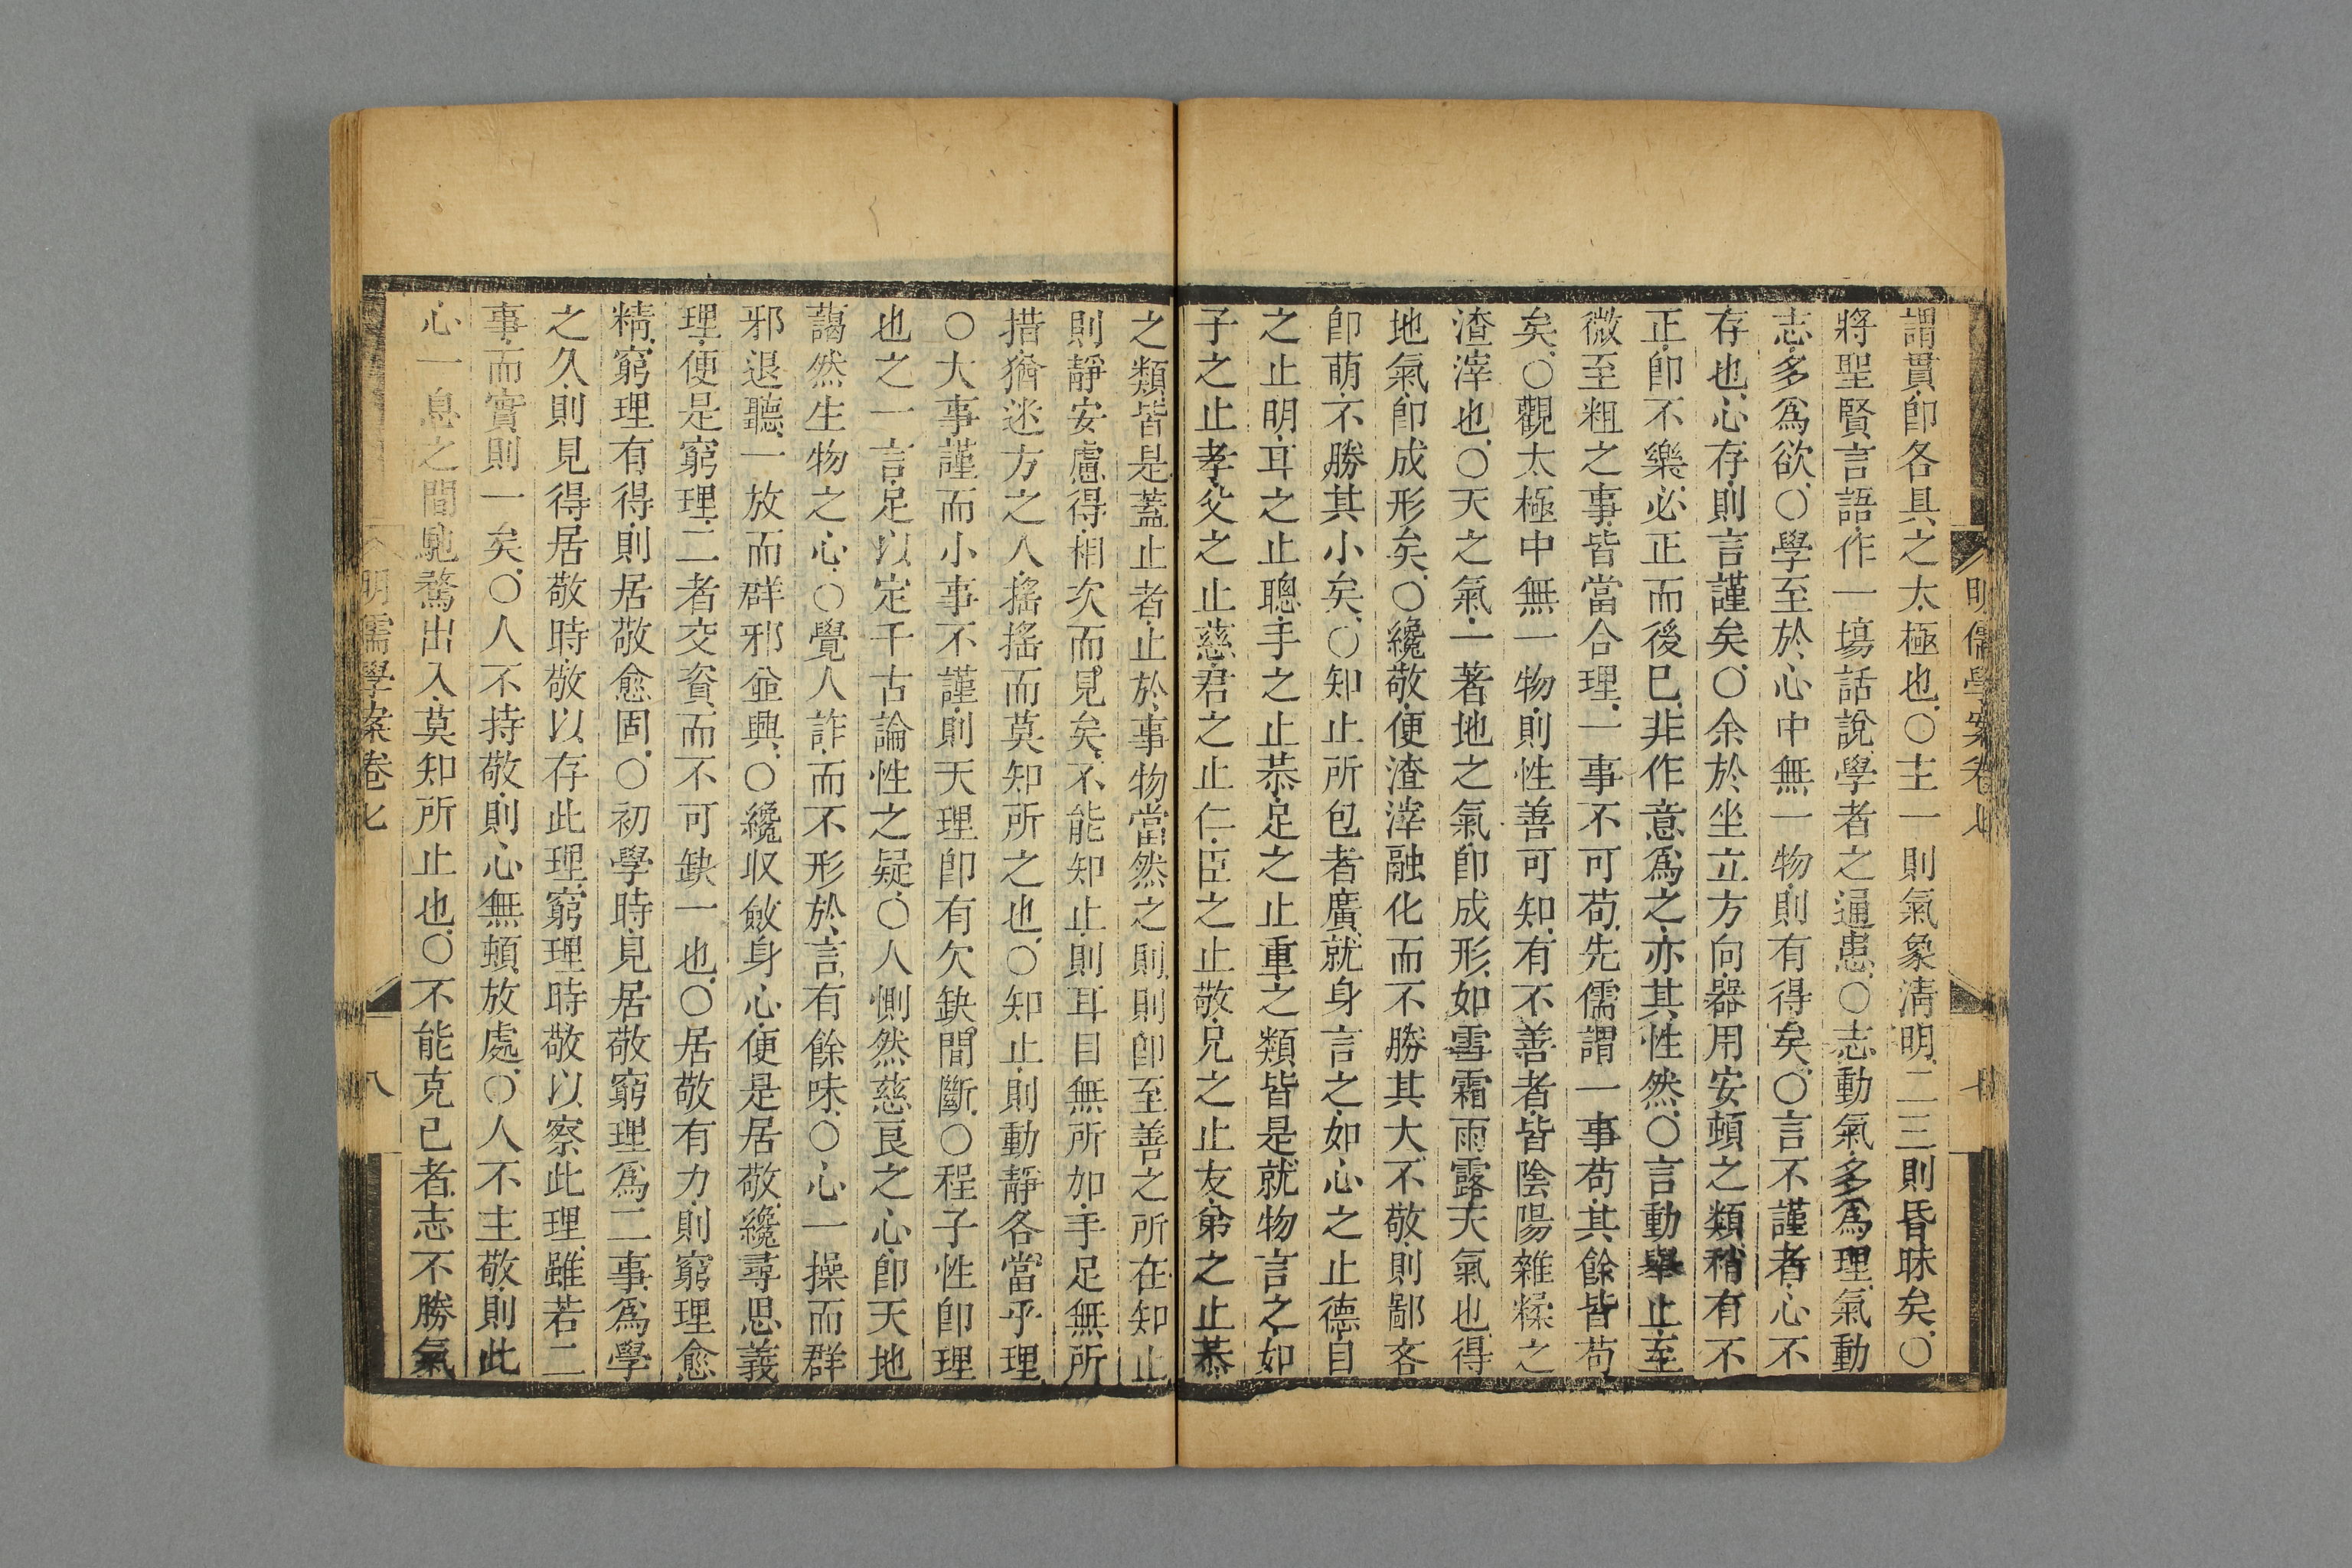 明儒學案卷七
七
謂貫卽各具之太極也○主一則氣象淸明二三則昏昧矣○
將聖賢言語作一場話說學者之通患○志動氣多爲理氣動
志多爲欲○學至於心中無一物則有得矣○言不謹者心不
存也心存則言謹矣○余於坐立方向器用安頓之類稍有不
正卽不樂必正而後已非作意爲之亦其性然○言動舉止至
微至粗之事皆當合理一事不可苟先儒謂一事苟其餘皆苟
矣○觀太極中無一物則性善可知有不善者皆陰陽雜糅之
渣滓也○天之氣一著地之氣卽成形如雪霜雨露天氣也得
地氣卽成形矣○纔敬便渣滓融化而不勝其大不敬則鄙吝
卽萌不勝其小矣○知止所包者廣就身言之如心之止德目
之止明耳之止聰手之止恭足之止重之類皆是就物言之如
子之止孝父之止慈君之止仁臣之止敬兄之止友弟之止恭
之類皆是蓋止者止於事物當然之則則卽至善之所在知止
則靜安慮得相次而見矣不能知止則耳目無所加手足無所
措猶迷方之人搖搖而莫知所之也○知止則動靜各當乎理
○大事謹而小事不謹則天理卽有欠缺間斷○程子性卽理
也之一言足以定千古論性之疑○人惻然慈良之心卽天地
藹然生物之心○覺人詐而不形於言有餘味○心一操而群
邪退聽一放而群邪並興○纔收斂身心便是居敬纔尋思義
理便是窮理二者交資而不可缺一也○居敬有力則窮理愈
精窮理有得則居敬愈固○初學時見居敬窮理爲二事爲學
之久則見得居敬時敬以存此理窮理時敬以察此理雖若二
事而實則一矣○人不持敬則心無頓放處○人不主敬則此
心一息之間馳騖出入莫知所止也○不能克己者志不勝氣
明儒學案卷七
八